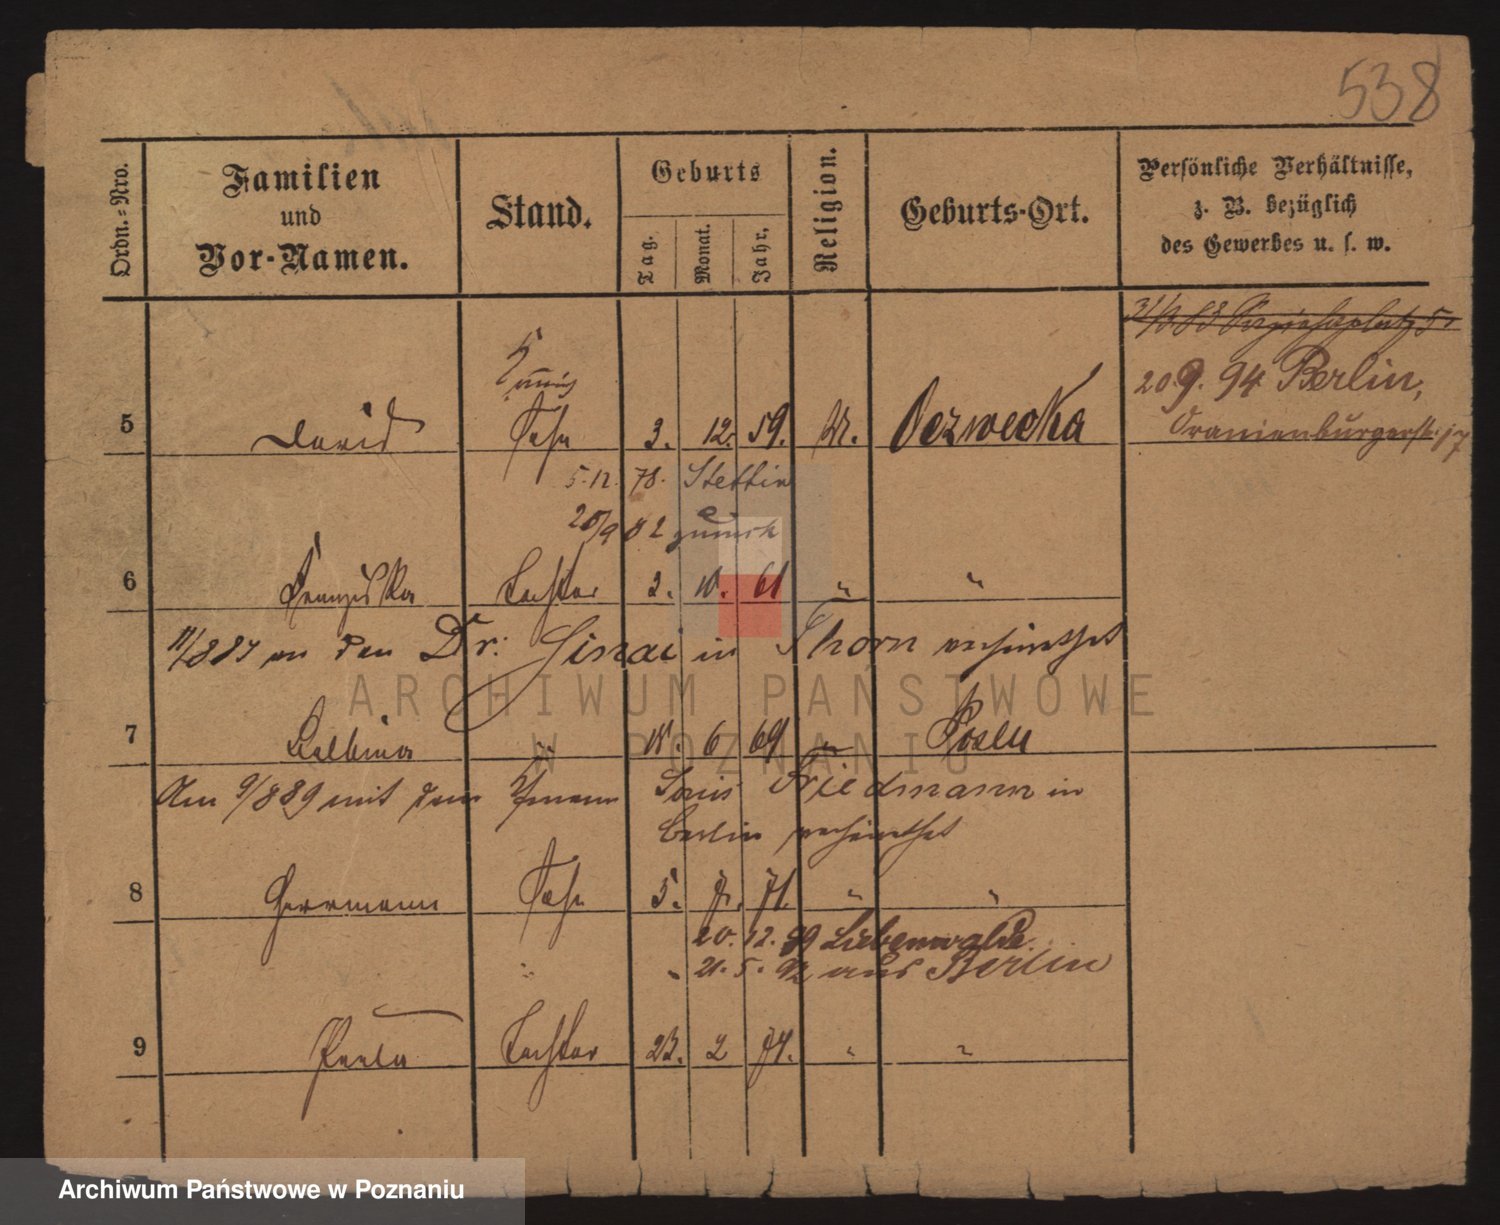 538
Ordn.-Nro.
Familien
und
Vor-Namen.
Stand.
Geburts
Tag.
Monat.
Jahr.
Religion.
Geburts-Ort.
Persönliche Verhältnisse,
z. B. bezüglich
des Gewerbes u. s. w.
20.9. 94 Berlin,
5 David Sohn 3. 12. 59. Oczwecka
Oranienburgerstr. 17
5. 12. 78. Stettin
20/9 82 zurück
6 Franziska Tochter 3. 61 " "
11/8 87 an den Dr: Sinai in Thorn verheirathet
7 Balbina " 6 69 " Posen
Am 9/8 89 mit dem Louis Friedmann in
Berlin verheirathet
8 Herrmann Sohn 5. 7. 71. " "
20. 12. 89 Liebenwalde
" " 21. 5. 92 aus Berlin
9 Paula Tochter 23. 2 74. " "
ARCHIWUM PAŃSTWOWE
W POZNANIU
Archiwum Państwowe w Poznaniu